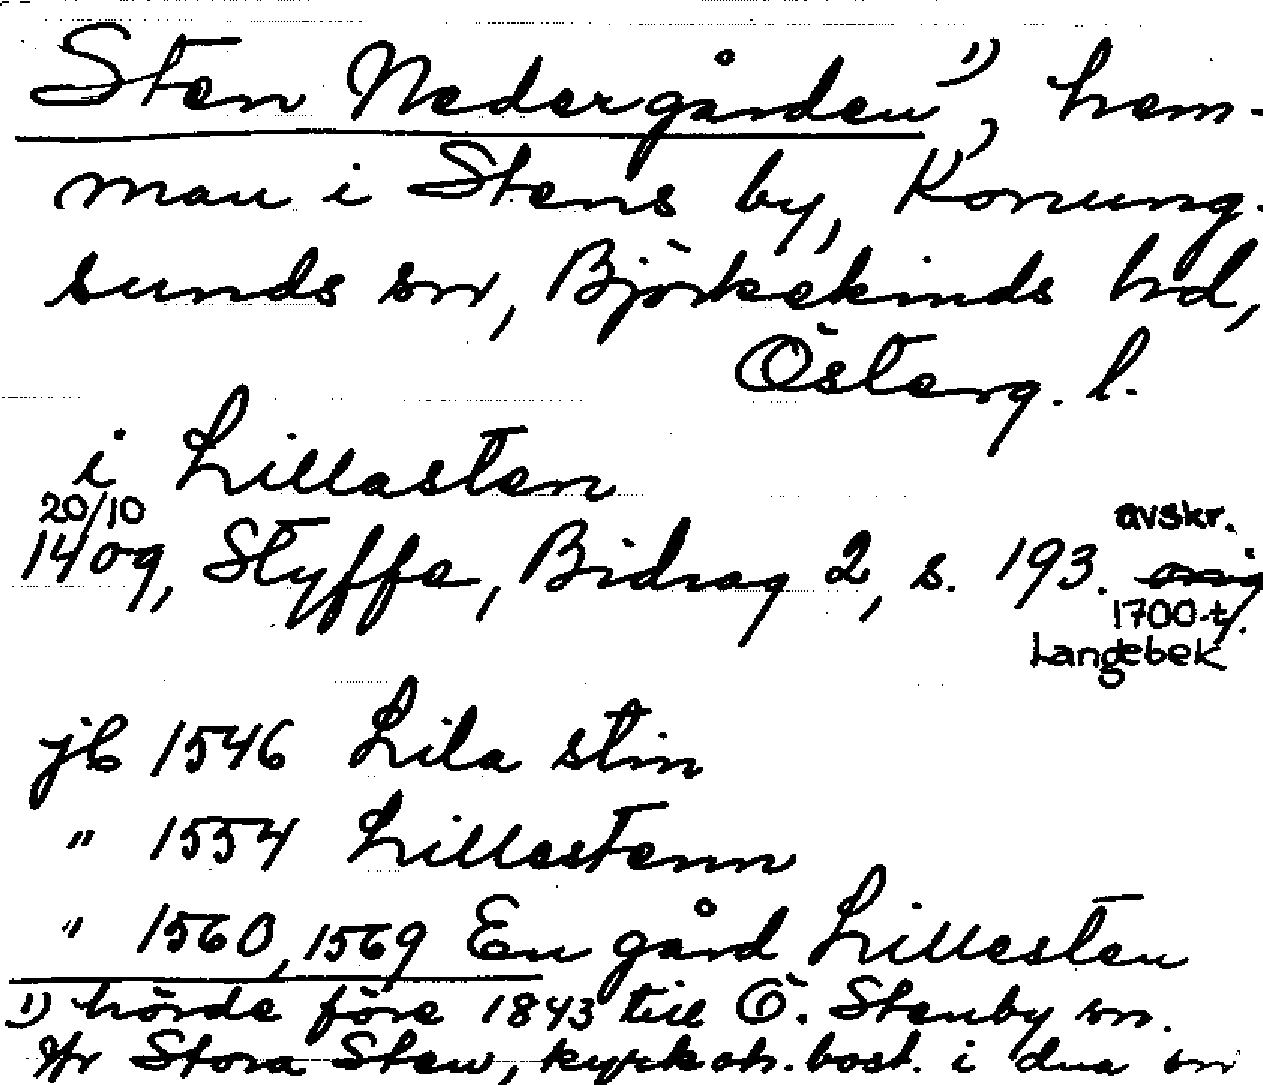 Sten Nedergården 1), hem-
man i Stens by, Konung-
sunds sn, Björkekinds hd,
Österg. l.
i Lillasten
20/10
1409, Styffe, Bidrag 2, s. 193. avskr.
1700-t.
Langebek
jb 1546 Lila stin
" 1554 Lillestenn
" 1560, 1569 En gård Lillesten
1) hörde före 1843 till Ö. Stenby sn.
Jfr Stora Sten, bost. i dna sn